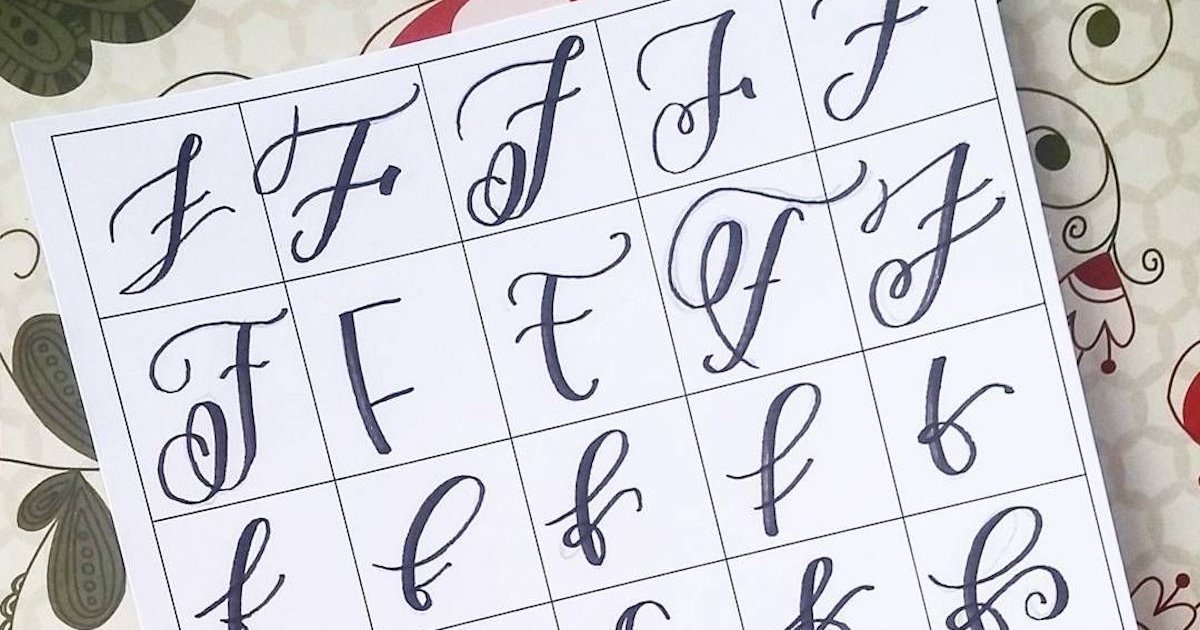 F F F F F
F F F F F
f f f f f
f f f